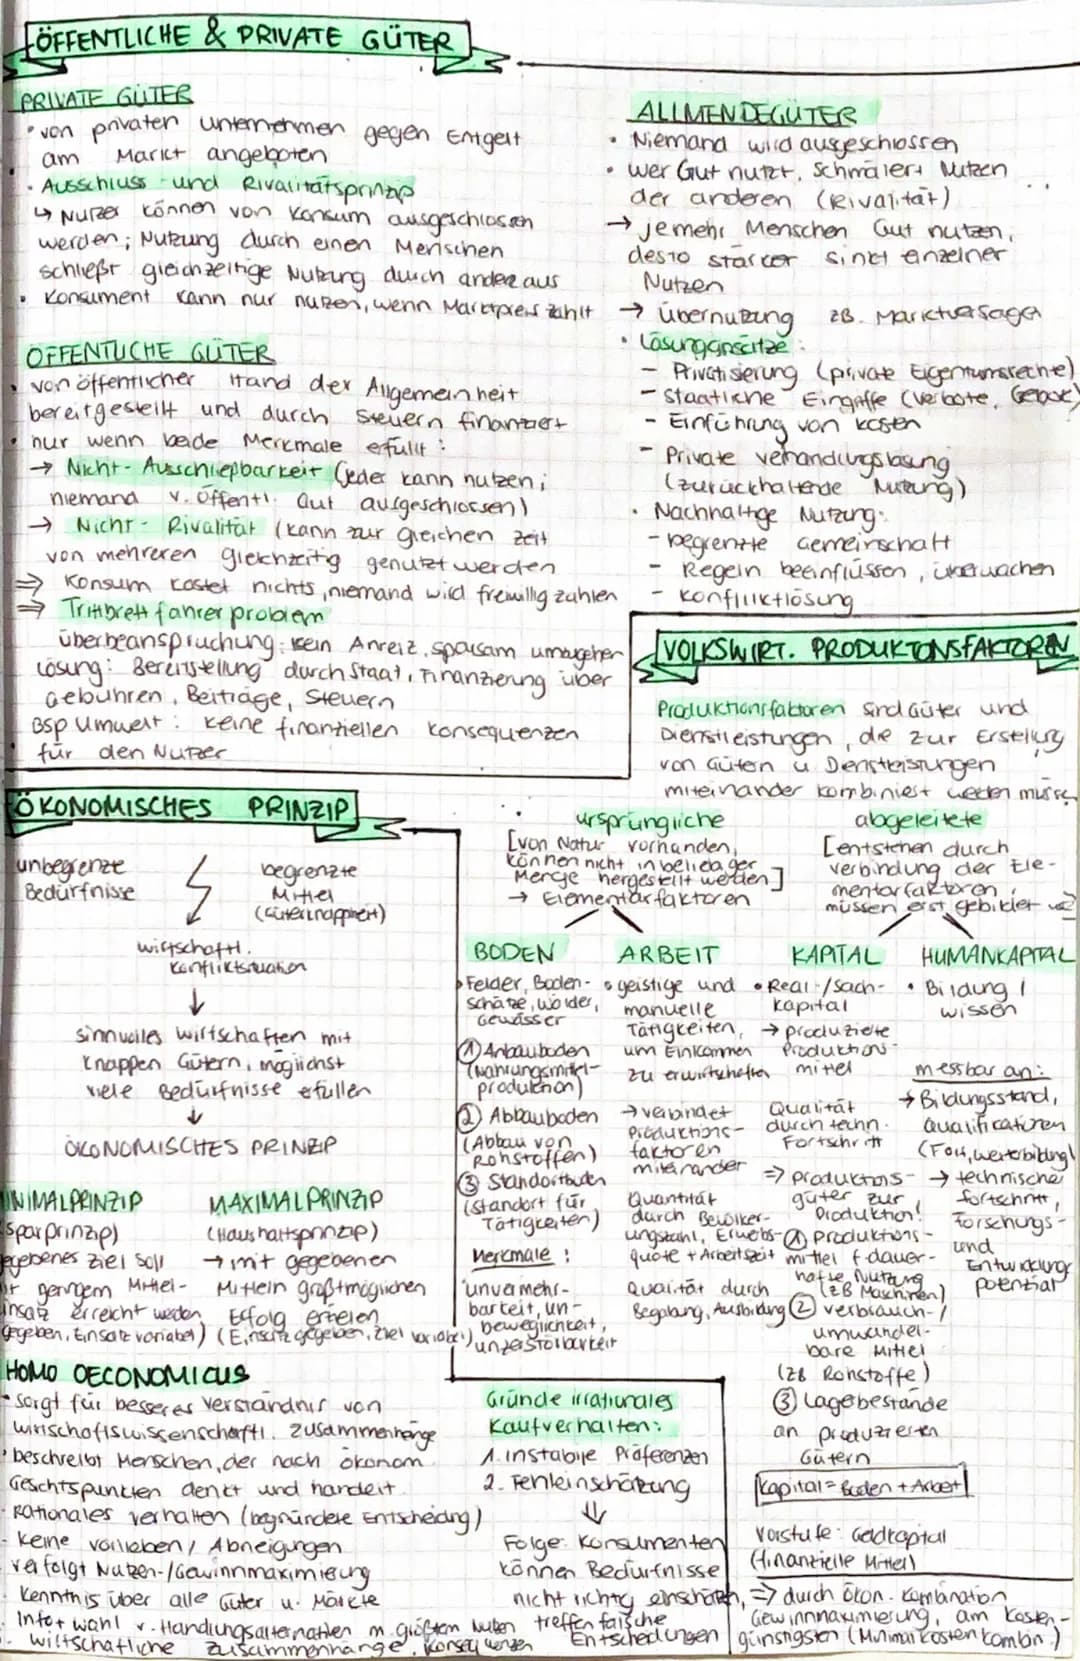 ÖFFENTLICHE & PRIVATE GÜTER
PRIVATE GÜTER
• von privaten unternehmen gegen Entgelt
am Markt angeboten
• Ausschluss- und Rivalitätsprinzip
↳ Nutzer können von Konsum ausgeschlossen
werden; Nutzung durch einen Menschen
schließt gleichzeitige Nutzung durch andere aus
• Konsument kann nur nutzen, wenn Marktpreis zahlt
ÖFFENTLICHE GÜTER
• von öffentlicher Hand der Allgemeinheit
bereitgestellt und durch Steuern finanziert
• nur wenn beide Merkmale erfüllt:
→ Nicht-Ausschließbarkeit (jeder kann nutzen;
niemand v. öffentl. Gut ausgeschlossen)
→ Nicht-Rivalität (kann zur gleichen Zeit
von mehreren gleichzeitig genutzt werden
⇒ Konsum kostet nichts, niemand wird freiwillig zahlen
⇒ Trittbrettfahrerproblem
überbeanspruchung: kein Anreiz, sparsam umzugehen
Lösung: Bereitstellung durch Staat, Finanzierung über
Gebühren, Beiträge, Steuern
Bsp Umwelt: keine finanziellen Konsequenzen
• für den Nutzer
ALLMENDEGÜTER
• Niemand wird ausgeschlossen
• wer Gut nutzt, schmälert Nutzen
der anderen (Rivalität)
→ je mehr Menschen Gut nutzen,
desto stärker sinkt einzelner
Nutzen
→ übernutzung zB. Marktversagen
• Lösungsansätze:
- Privatisierung (private Eigentumsrechte)
- staatliche Eingriffe (Verbote, Gebote)
- Einführung von Kosten
- Private Verhandlungslösung
(zurückhaltende Nutzung)
• Nachhaltige Nutzung:
- begrenzte Gemeinschaft
- Regeln beeinflussen, überwachen
- Konfliktlösung
VOLKSWIRT. PRODUKTONSFAKTOREN
Produktionsfaktoren sind Güter und
Dienstleistungen, die zur Erstellung
von Gütern u Dienstleistungen
miteinander kombiniert werden müssen
ursprüngliche
[von Natur vorhanden,
können nicht in beliebiger
Menge hergestellt werden]
→ Elementarfaktoren
abgeleitete
[entstehen durch
verbindung der Ele-
mentarfaktoren,
müssen erst gebildet
BODEN
• Felder, Boden-
schätze, Wälder,
Gewässer
① Anbauboden
(Nahrungsmittel-
produktion)
② Abbauboden
(Abbau von
Rohstoffen)
③ Standortboden
(Standort für
Tätigkeiten)
Merkmale:
unvermehr-
barkeit, un-
beweglichkeit,
unzerstörbarkeit
ARBEIT
• geistige und
manuelle
Tätigkeiten,
um Einkommen
zu erwirtschaften
→ verbindet
Produktions-
faktoren
miteinander
Quantität
durch Bevölker-
ungszahl, Erwerbs-
quote + Arbeitszeit
Qualität durch
Begabung, Ausbildung
KAPITAL
• Real-/Sach-
kapital
→ produzierte
Produktions-
mittel
Qualität
durch techn.
Fortschritt
⇒ Produktions-
güter zur
Produktion!
① Produktions-
mittel f. dauer-
hafte Nutzung
(zB Maschinen)
② verbrauch-/
umwandel-
bare Mittel
(zB Rohstoffe)
③ Lagebestände
an produzierten
Gütern
Kapital = Boden + Arbeit
Vorstufe: Geldkapital
(finanzielle Mittel)
HUMANKAPITAL
• Bildung /
wissen
messbar an:
→ Bildungsstand,
Qualifikationen
(Fort, Weiterbildung)
→ technischer
Fortschritt,
Forschungs-
und
Entwicklungs
potenzial
⇒ durch ökon. Kombination
Gewinnmaximierung, am kosten-
günstigsten (Minimalkostenkombin.)
ÖKONOMISCHES PRINZIP
unbegrenzte
Bedürfnisse
begrenzte
Mittel
(Güterknappheit)
wirtschaftl.
Konfliktsituation
↓
sinnvolles wirtschaften mit
knappen Gütern, möglichst
viele Bedürfnisse erfüllen
↓
ÖKONOMISCHES PRINZIP
INIMALPRINZIP
Sparprinzip)
egebenes Ziel soll
it geringem Mittel-
insatz erreicht werden
gegeben, Einsatz variabel)
MAXIMALPRINZIP
(Haushaltsprinzip)
→ mit gegebenen
Mitteln größtmöglichen
Erfolg erzielen
(Einsatz gegeben, Ziel variabel)
HOMO OECONOMICUS
- sorgt für besseres Verständnis von
wirtschaftswissenschaftl. Zusammenhänge
• beschreibt Menschen, der nach ökonom.
Gesichtspunkten denkt und handelt
- Rationales verhalten (begründete Entscheidung)
- Keine vorlieben / Abneigungen
- verfolgt Nutzen-/Gewinnmaximierung
- Kenntnis über alle Güter u. Märkte
- Info + Wahl v. Handlungsalternativen m. größtem Nutzen
- wirtschaftliche Zusammenhänge, Konsequenzen
Gründe irrationales
Kaufverhalten:
1. instabile Präferenzen
2. Fehleinschätzung
⇓
Folge: Konsumenten
können Bedürfnisse
nicht richtig einschätzen,
treffen falsche
Entscheidungen